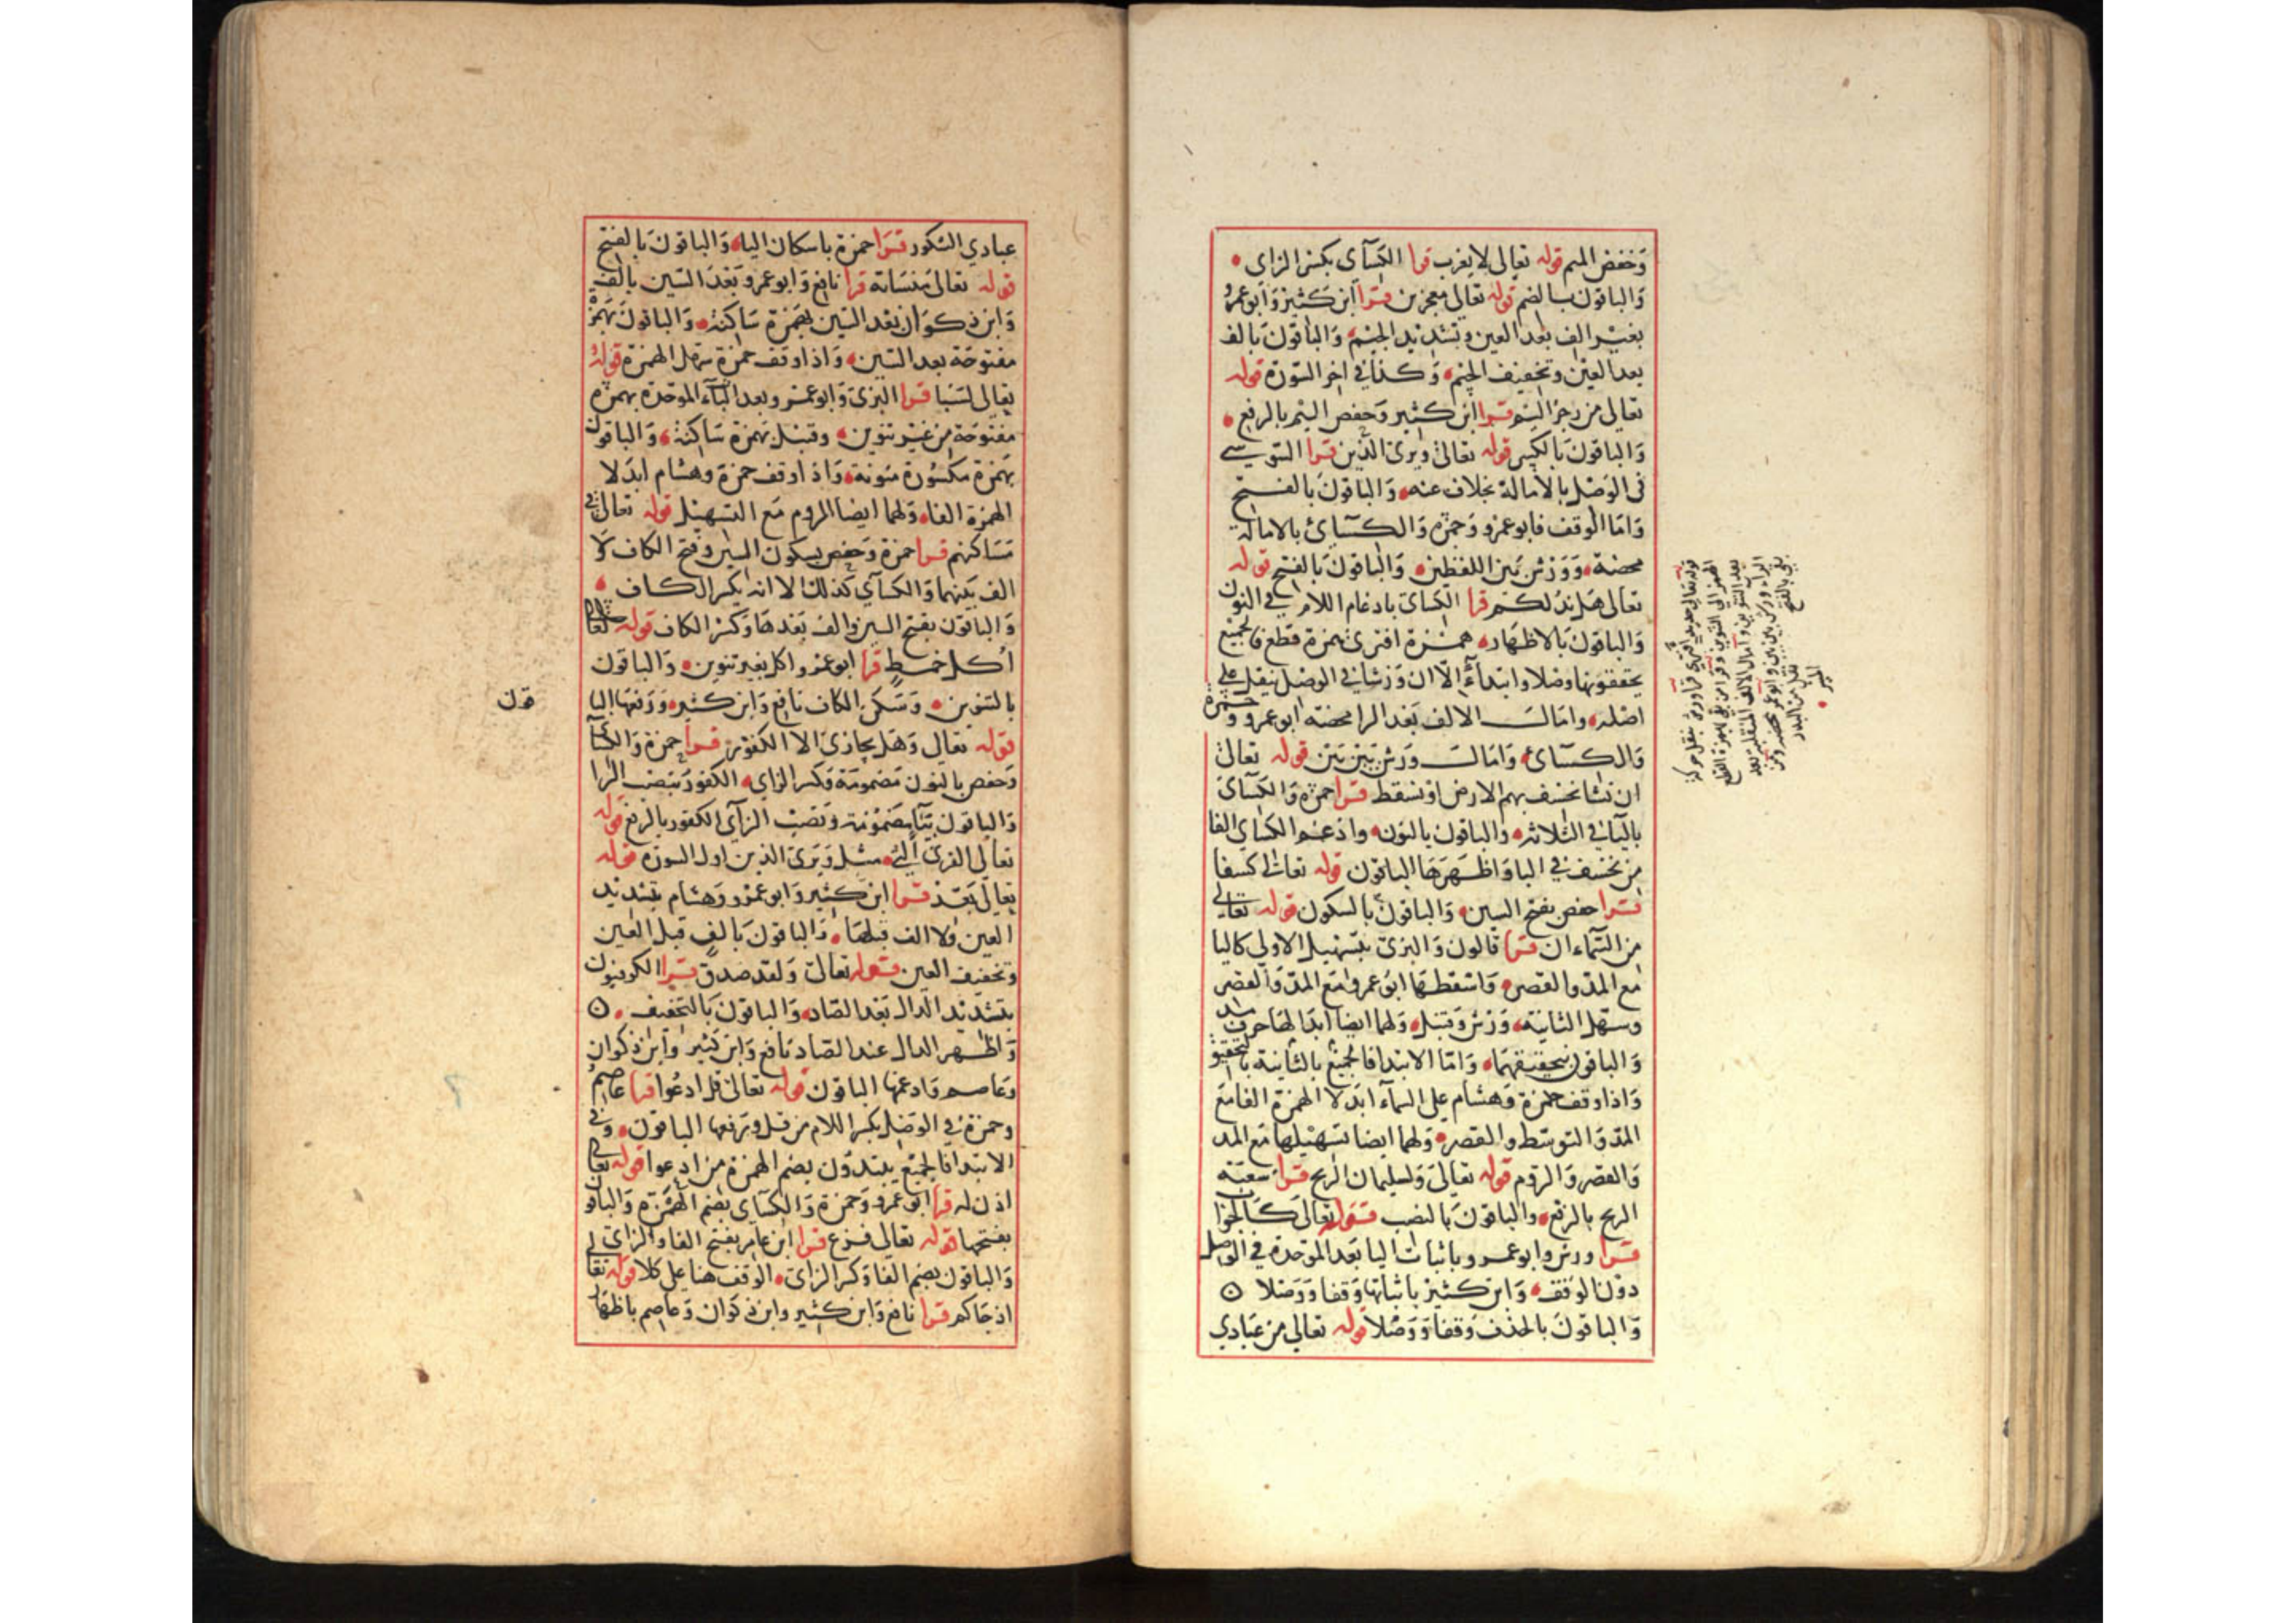 وخفض الميم قوله تعالى لا يعزب قرا الكسآى بكسر الزاى
والباقون بالضم قوله تعالى معجزين قرا ابن كثير وابو عمرو
بغير الف بعد العين وتشديد الجيم والباقون بالف
بعد العين وتخفيف الجيم وكذا في اخر السورة قوله
تعالى من رجز اليم قرا ابن كثير وحفص اليم بالرفع
والباقون بالكسر قوله تعالى ويرى الذين قرا السوسي
فى الوصل بالامالة بخلاف عنه والباقون بالفتح
واما الوقف فابو عمرو وحمزه والكسآئ بالامالة
محضة وورش بين اللفظين والباقون بالفتح قوله
تعالى هل ندلكم قرا الكسآى بادغام اللام في النون
والباقون بالاظهار همزة افترى همزة قطع فالجميع
يحققونها وصلا وابتدآءً إلا ان ورشا في الوصل ينقل على
اصله وامالـــ الالف بعد الرا محضه ابو عمرو وحمزة
والكسآئ وامالـــ ورش بين بين قوله تعالى
ان نشا نخسف بهم الارض او نسقط قرا حمزه والكسآى
باليآ في الثلاثه والباقون بالنون وادغم الكساي الفا
من نخسف في البا واظهرها الباقون قوله تعالى كسفا
قرا حفص بفتح السين والباقون بالسكون قوله تعالى
من السمآء ان قرا قالون والبزى بتسهيل الاولى كاليا
مع المد والقصر واسقطها ابو عمرو مع المد والقصر
وسهل الثانية ورش وقنبل ولهما ايضا ابدالها حرف مد
والباقون بتحقيقهما واما الابتدا فالجميع بالثانية بالتحقيق
واذا وقف حمزة وهشام على السمآء ابدلا الهمزة الفا مع
المد والتوسط والقصر ولهما ايضا تسهيلها مع المد
والقصر والروم قوله تعالى ولسليمان الريح قرا شعبة
الريح بالرفع والباقون بالنصب قوله تعالى كالجوا
قرا ورش وابو عمرو باثبات اليا بعد الموحدة في الوصل
دون الوقف وابن كثير باثباتها وقفا ووصلا
والباقون بالحذف وقفا ووصلا قوله تعالى من عبادي
قوله تعالى جديد افترى قرا ورش بنقل حركة
الهمز الى التنوين وقرا من بقي بهمزة القطع
بعد التنوين وامال الالف المنقلبة بعد
الراء ورش بين بين وابو عمرو محضه ومن
بقي بالفتح
عبادي الشكور قرا حمزة باسكان اليا والباقون بالفتح
قوله تعالى منساته قرا نافع وابو عمرو بعد السين بالف
وابن ذكوان بعد السين بهمزة ساكنة والباقون بهمزة
مفتوحة بعد السين واذا وقف حمزة سهل الهمزة قوله
تعالى لسبا قرا البزى وابو عمرو بعد البآء الموحدة بهمزة
مفتوحة من غير تنوين وقنبل بهمزة ساكنة والباقون
بهمزة مكسورة منونة واذا وقف حمزة وهشام ابدلا
الهمزة الفا ولهما ايضا الروم مع التسهيل قوله تعالى في
مساكنهم قرا حمزة وحفص بسكون السين وفتح الكاف ولا
الف بينهما والكسآي كذلك الا انه يكسر الكاف
والباقون بفتح السين والف بعدها وكسر الكاف قوله تعالى
اكل خمط قرا ابو عمرو اكل بغير تنوين والباقون
بالتنوين وسكن الكاف نافع وابن كثير ورفعها الباقون
قوله تعالى وهل يجازى الا الكفور قرا حمزة والكسآى
وحفص بالنون مضمومة وكسر الزاي الكفور بنصب الرا
والباقون بيآ مضمومة ونصب الزآى الكفور بالرفع قوله
تعالى القرى التي مثل ويرى الذين اول السورة قوله
تعالى بعد قرا ابن كثير وابو عمرو وهشام بتشديد
العين ولا الف قبلها والباقون بالف قبل العين
وتخفيف العين قوله تعالى ولقد صدق قرا الكوفيون
بتشديد الدال بعد الصاد والباقون بالتخفيف
واظهر الدال عند الصاد نافع وابن كثير وابن ذكوان
وعاصم وادغمها الباقون قوله تعالى قل ادعوا قرا عاصم
وحمزة في الوصل بكسر اللام من قل ورفعها الباقون وفى
الابتدا فالجميع يبتدؤن بضم الهمزة من ادعوا قوله تعالى
اذن له قرا ابو عمرو وحمزة والكسآى بضم الهمزة والباقون
بفتحها قوله تعالى فزع قرا ابن عامر بفتح الفا والزاى
والباقون بضم الفا وكسر الزاى الوقف هنا على كلا قوله تعالى
اذ جاكم قرا نافع وابن كثير وابن ذكوان وعاصم باظهار